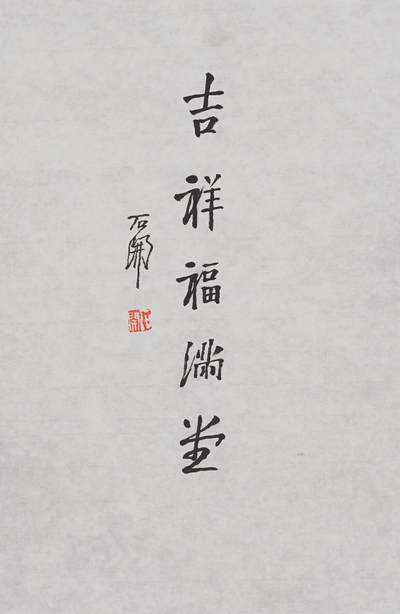 吉祥福满堂
石开